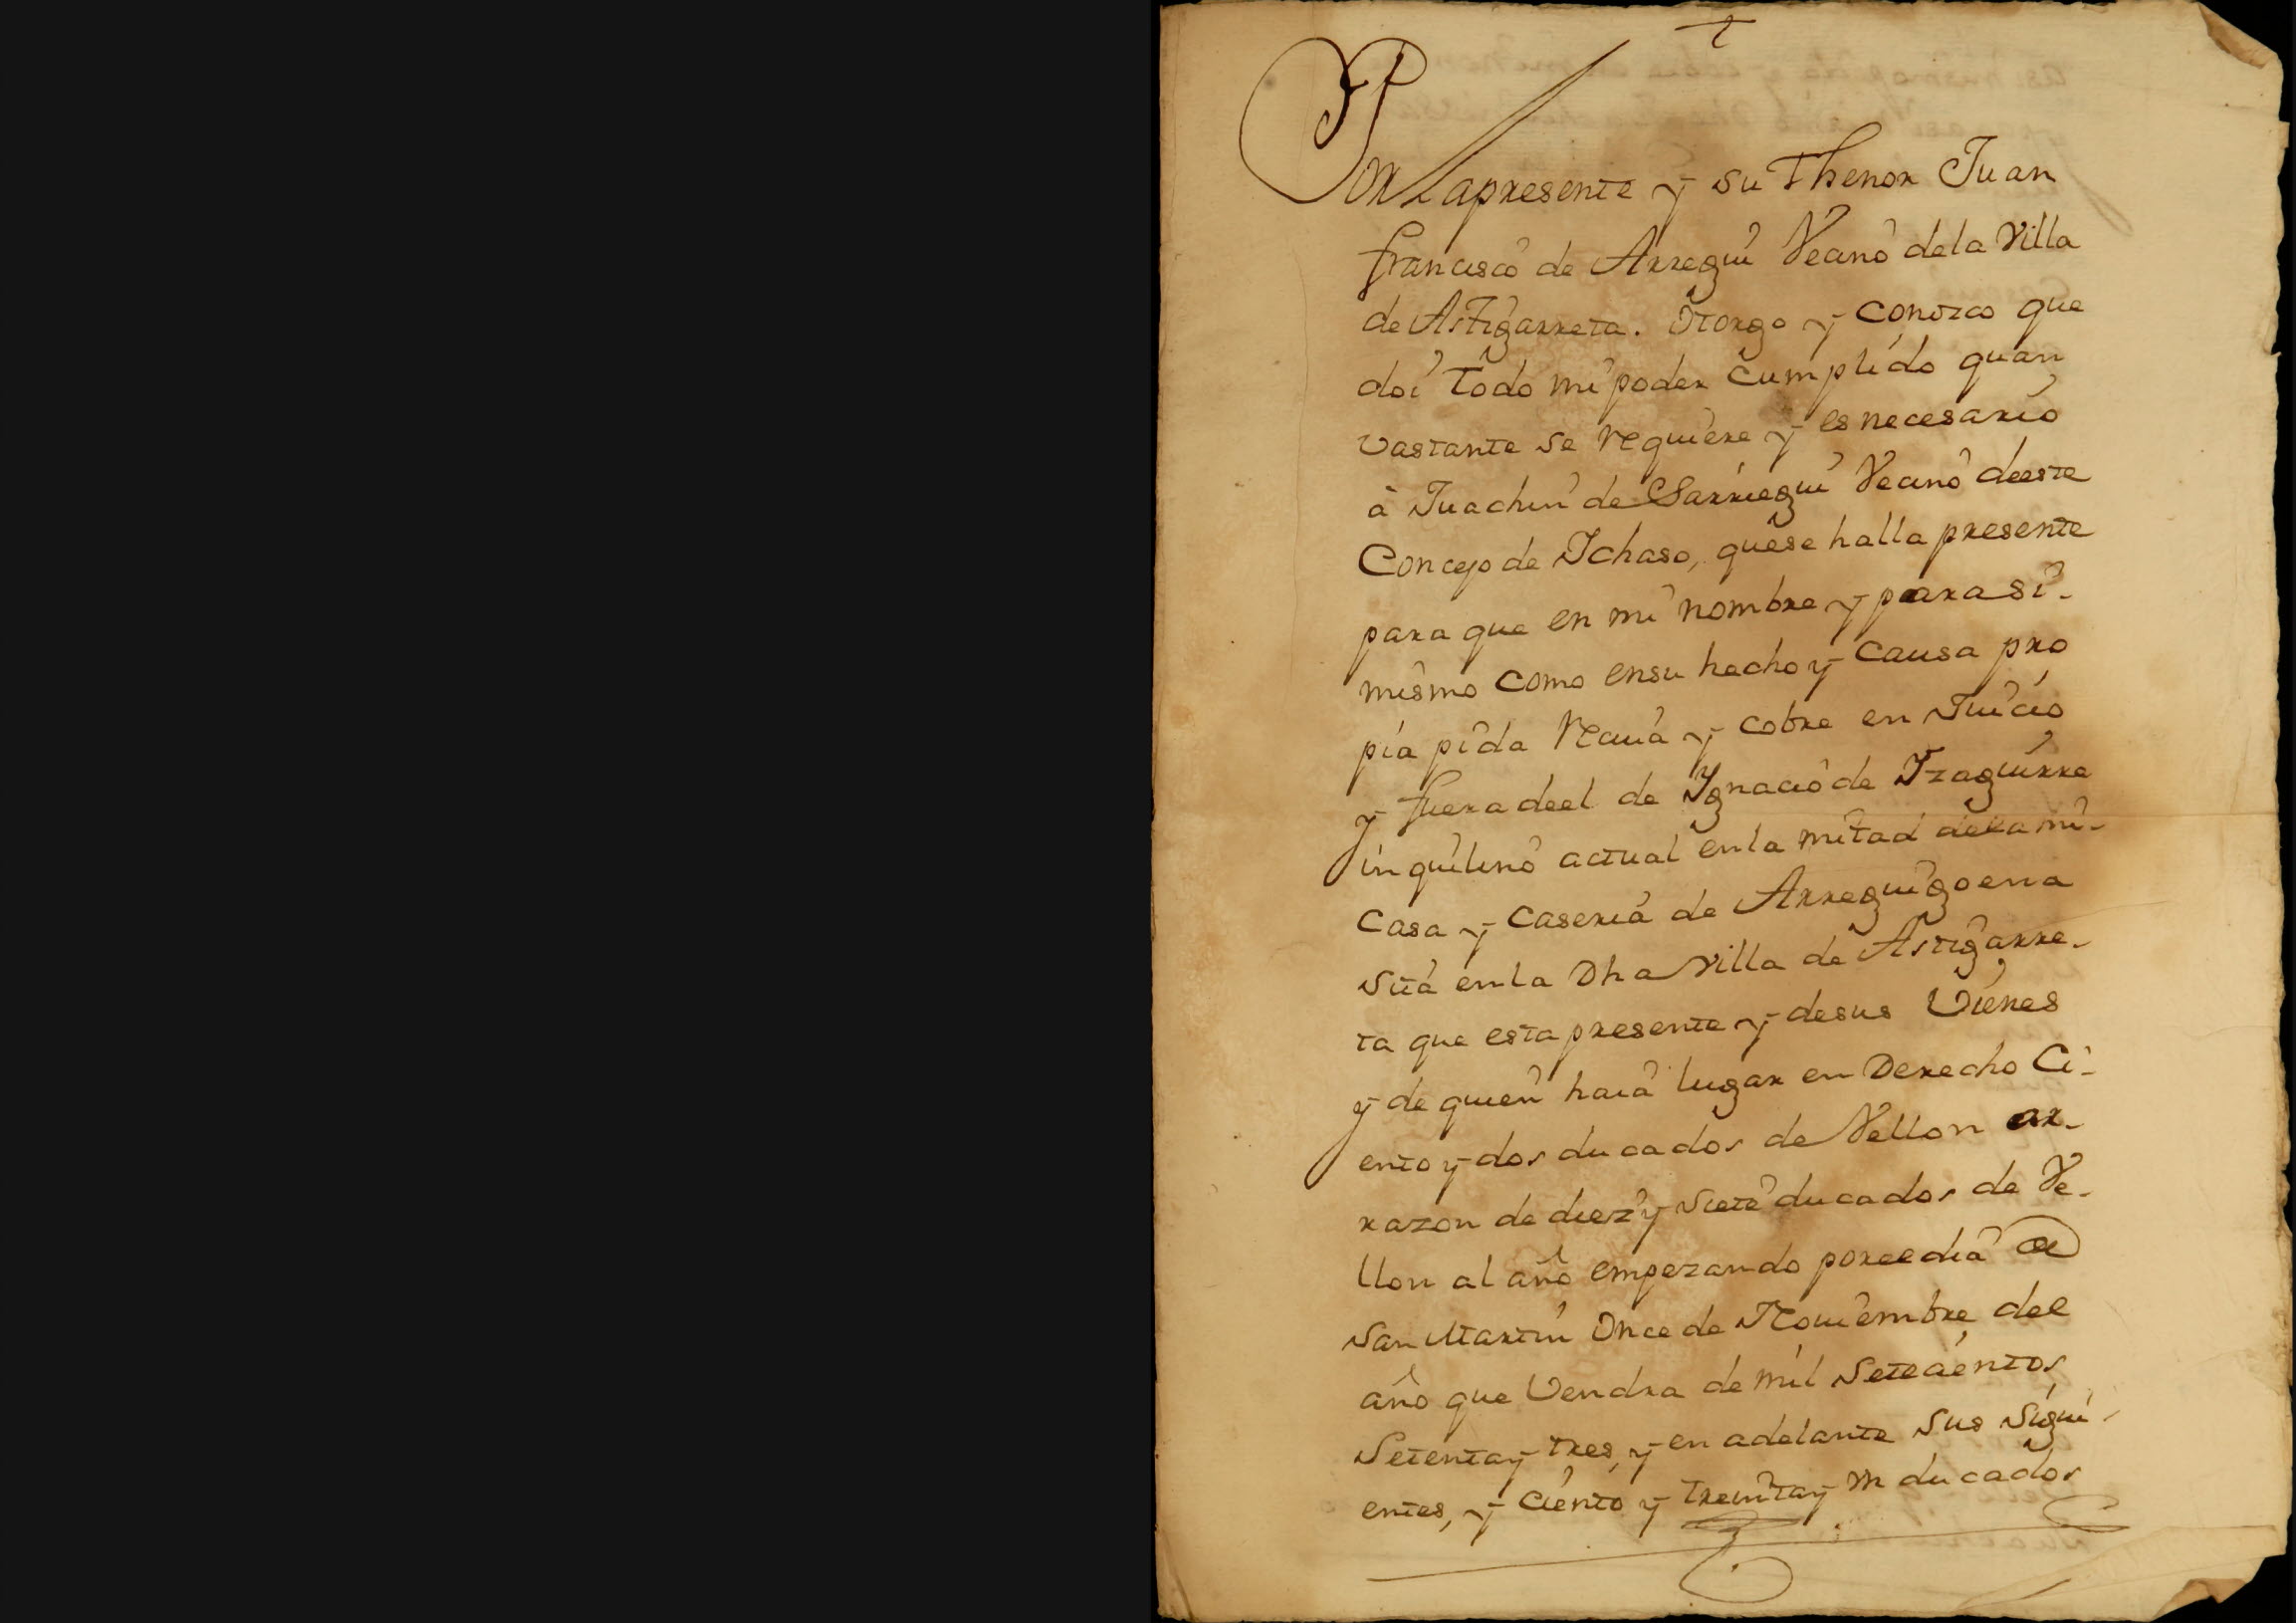 Por la presente y su thenor Juan
francisco de Arregui Vecino de la Villa
de Astigarreta. Otorgo y conozco que
doi todo mi poder cumplido quan
vastante se requiere y es necesario
à Juachin de Sarriegui Vecino de este
Concejo de Ichaso, que se halla presente
para que en mi nombre y para si-
mismo como en su hecho y causa pro
pia pida Reciva y cobre en Juicio
y fuera de el de Ygnacio de Yzaguirre
inquilino actual en la mitad de la mi-
casa y caseria de Arreguigoena
sita en la Dha Villa de Astigarre-
ta que esta presente y de sus Vienes
y de quien haia lugar en Derecho Ci-
ento y dos ducados de Vellon
razon de diez y siete ducados de Ve-
llon al año empezando por el dia de
San Martin Once de Noviembre del
año que Vendra de mil Setecientos
Setenta y tres, y en adelante sus sigui-
entes, y ciento y treinta y un ducados